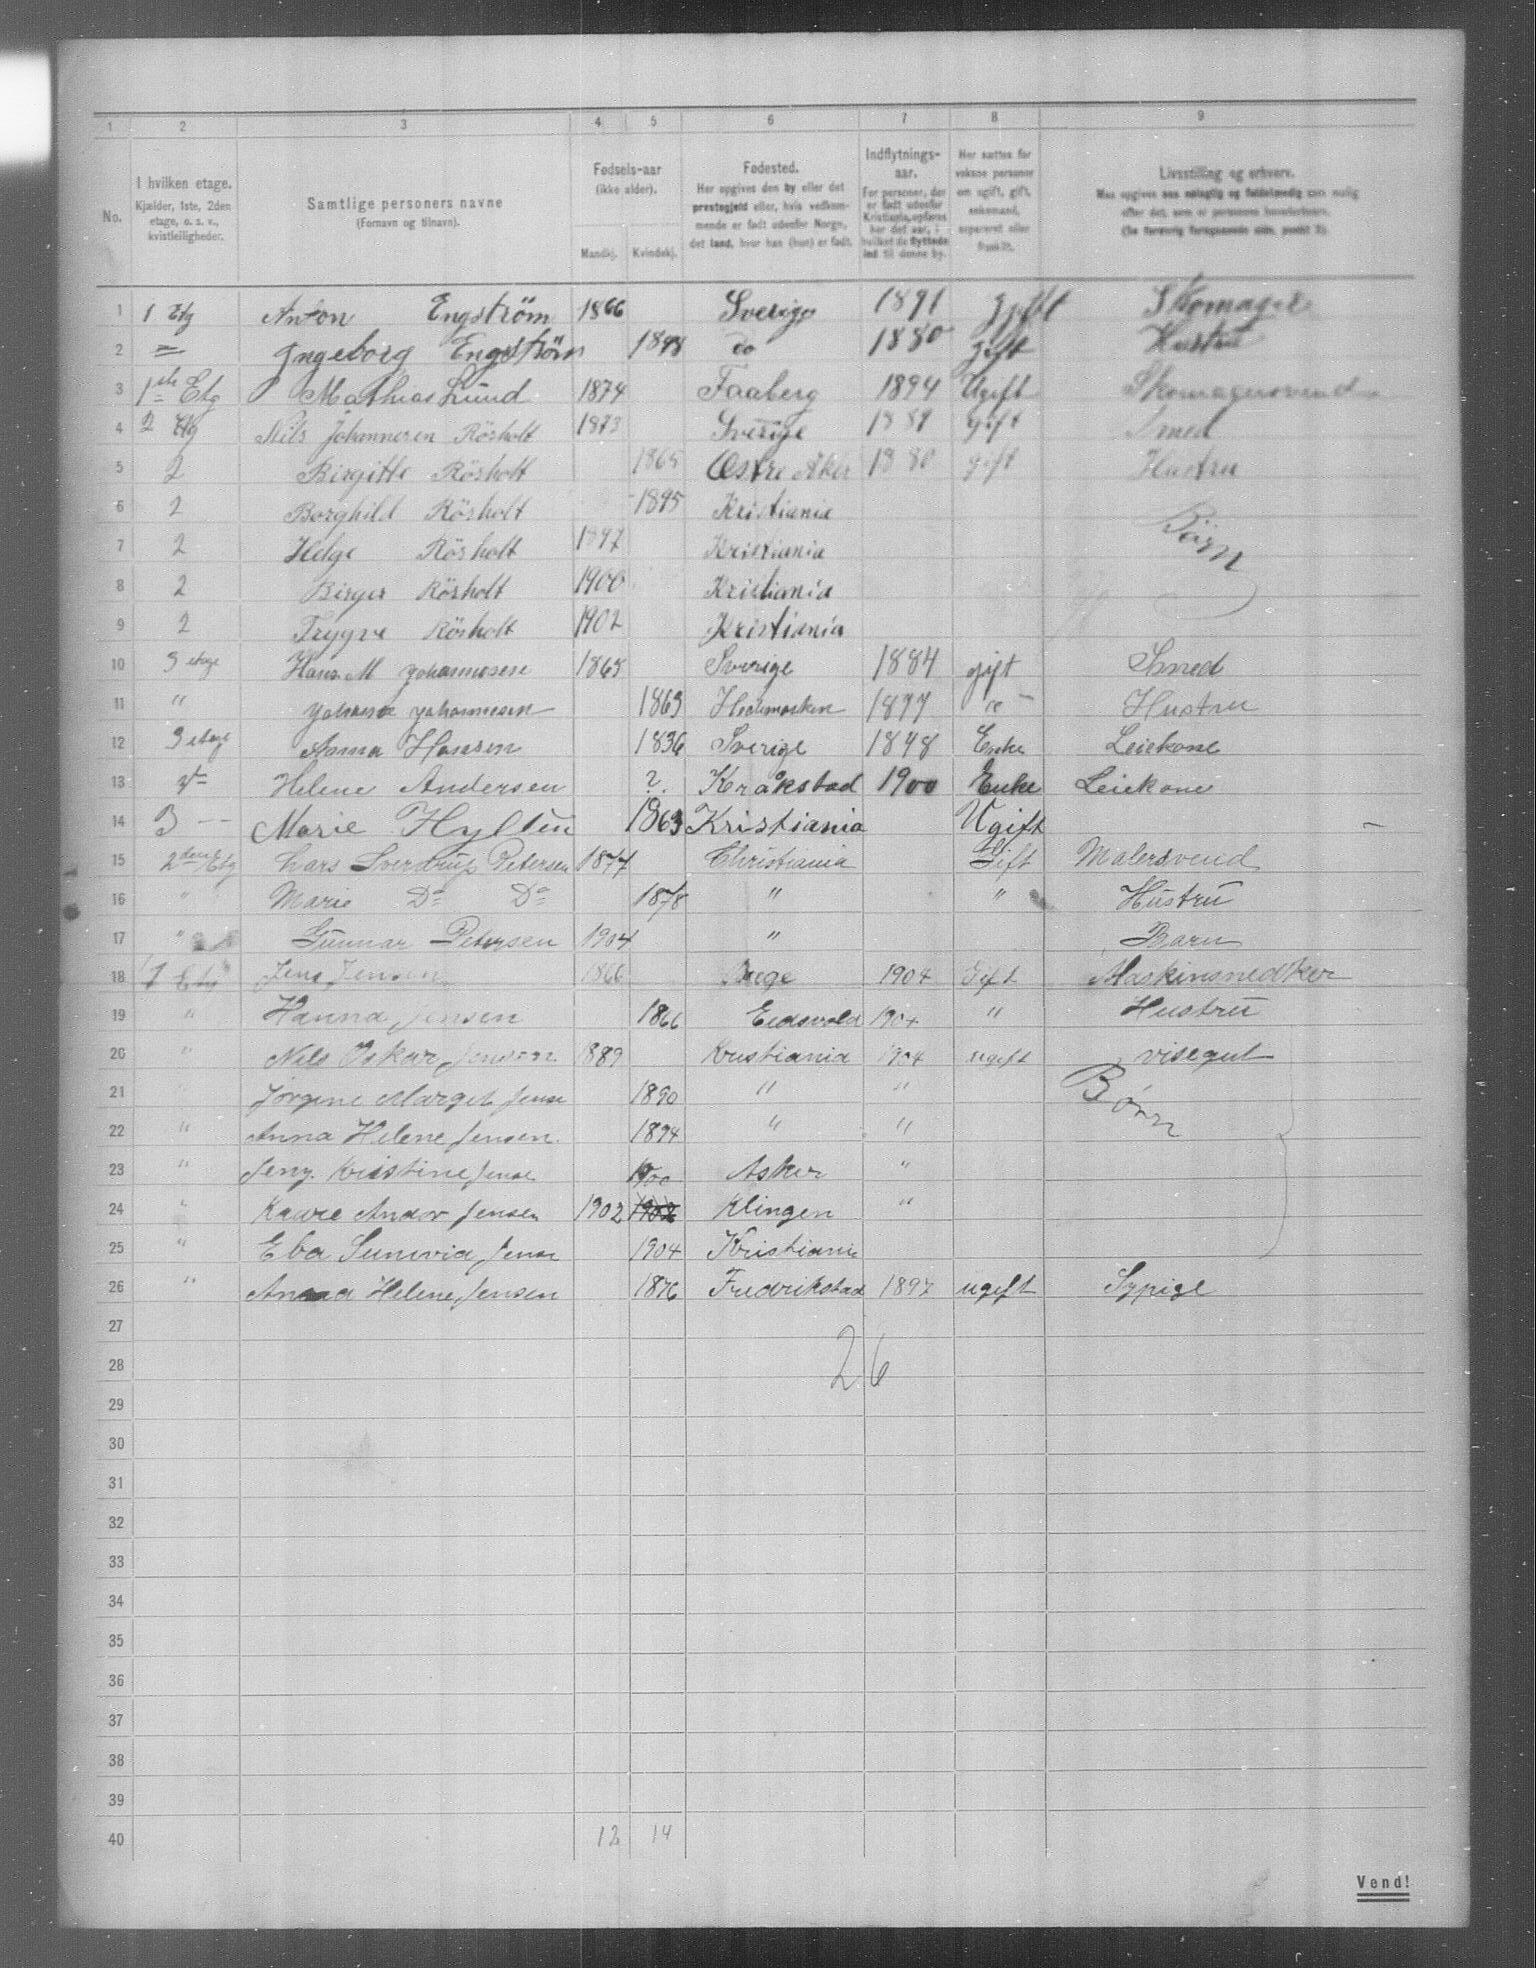 1 2 3 4 5 6 7 8 9
No.
I hvilken etage.
Kjælder, 1ste, 2den
etage, o. s. v.,
kvistleiligheder.
Samtlige personers navne
(Fornavn og tilnavn).
Fødsels-aar
(ikke alder).
Mandkj. Kvindekj.
Fødested.
Her opgives den by eller det
prestegjeld eller, hvis vedkom-
mende er født udenfor Norge,
det land, hvor han (hun) er født.
Indflytnings-
aar.
For personer, der
er født udenfor
Kristiania, opføres
her det aar, i
hvilket de flyttede
ind til denne by.
Her sættes for
voksne personer
om ugift, gift,
enkemand,
separeret eller
fraskilt.
Livsstilling og erhverv.
Maa opgives saa nøiagtig og fuldstændig som mulig
efter det, som er personens hovederhverv.
1 1 Etg Anton Engström 1866 Sverige 1891 gift Skomager
2 " Ingeborg Engström do 1880 gift Hustru
3 1ste Etg Mathias Lund 1874 Faaberg 1894 Ugift Skomagersvend
4 2 Etg Nils Johannesen Rösholt 1873 Sverige 1889 gift Smed
5 2 Birgitte Rösholt 1865 Østre Aker 1880 gift Hustru
6 2 Borghild Rösholt 1895 Kristiania
7 2 Helge Rösholt 1897 Kristiania Börn
8 2 Birger Rösholt 1900 Kristiania
9 2 Trygve Rösholt 1902 Kristiania
10 3 etage Hans M Johannesen 1865 Sverige 1884 gift Smed
11 " Johanne Johannesen 1863 Hedemarken 1897 " Hustru
12 3 etage Anna Hansen 1836 Sverige 1848 Enke Leiekone
13 Helene Andersen ? Kråkstad 1900 Enke Leiekone
14 3 -- Marie Hyltèn 1863 Kristiania Ugift —
15 2den Etg Lars Sverdrup Petersen 1877 Christiania Gift Malersvend
16 " Marie Do Do 1878 " " Hustru
17 " Gunnar Petersen 1904 " Barn
18 1 Etg Jens Jensen 1866 1904 Gift Maskinsnedker
19 " Hanna Jensen 1866 Eidsvold 1904 " Hustru
20 " Nils Oskar Jensen 1889 Kristiania 1904 ugift visegut
21 " Jørgine Marget Jense 1890 " " Børn
22 " Anna Helene Jensen. 1894 " "
23 " Jeny Kristine Jense 1900 Asker "
24 " Kaare Andor Jensen 1902 1902 Klingen "
25 " Eba Sunivia Jense 1904 Kristiania
26 " Anna Helene Jensen 1876 Fredrikstad 1897 ugift Sypige
27
28 26
29
30
31
32
33
34
35
36
37
38
39
40 12 14
Vend!